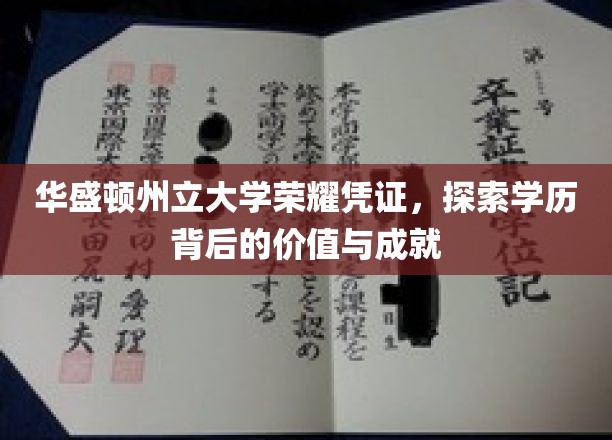 华盛顿州立大学荣耀凭证，探索学历
背后的价值与成就
第 号
卒業証 学位記
本学商学部 定の課程を
日生
修めて本学 ことを認め
学士(商学)の する
平成
東京国際大学 村 理
東京国際大学 長田尻嗣夫